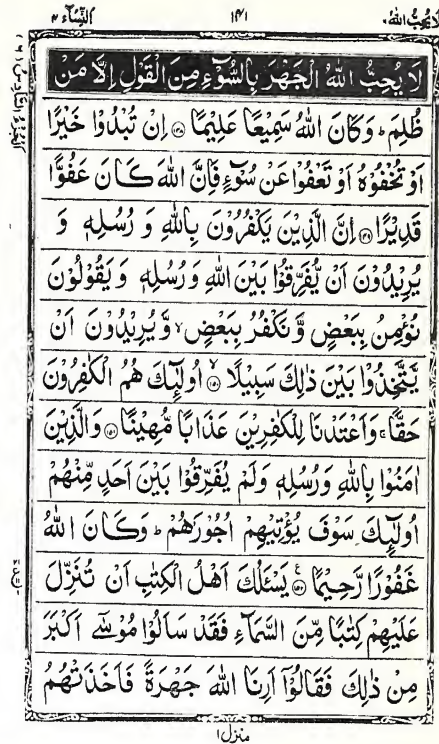 لا يحب الله ۶ ۱۴۱ النساء ۴
لَا يُحِبُّ اللّٰهُ الْجَهْرَ بِالسُّوْٓءِ مِنَ الْقَوْلِ اِلَّا مَنْ
ظُلِمَ ؕ وَكَانَ اللّٰهُ سَمِيْعًا عَلِيْمًا ﴿۱۴۸﴾ اِنْ تُبْدُوْا خَيْرًا
اَوْ تُخْفُوْهُ اَوْ تَعْفُوْا عَنْ سُوْٓءٍ فَاِنَّ اللّٰهَ كَانَ عَفُوًّا
قَدِيْرًا ﴿۱۴۹﴾ اِنَّ الَّذِيْنَ يَكْفُرُوْنَ بِاللّٰهِ وَ رُسُلِهٖ وَ
يُرِيْدُوْنَ اَنْ يُّفَرِّقُوْا بَيْنَ اللّٰهِ وَ رُسُلِهٖ وَ يَقُوْلُوْنَ
نُؤْمِنُ بِبَعْضٍ وَّ نَكْفُرُ بِبَعْضٍ ۙ وَّ يُرِيْدُوْنَ اَنْ
يَّتَّخِذُوْا بَيْنَ ذٰلِكَ سَبِيْلًا ﴿۱۵۰﴾ اُولٰٓئِكَ هُمُ الْكٰفِرُوْنَ
حَقًّا ۚ وَاَعْتَدْنَا لِلْكٰفِرِيْنَ عَذَابًا مُّهِيْنًا ﴿۱۵۱﴾ وَالَّذِيْنَ
اٰمَنُوْا بِاللّٰهِ وَرُسُلِهٖ وَلَمْ يُفَرِّقُوْا بَيْنَ اَحَدٍ مِّنْهُمْ
اُولٰٓئِكَ سَوْفَ يُؤْتِيْهِمْ اُجُوْرَهُمْ ؕ وَكَانَ اللّٰهُ
غَفُوْرًا رَّحِيْمًا ﴿۱۵۲﴾ يَسْـَٔلُكَ اَهْلُ الْكِتٰبِ اَنْ تُنَزِّلَ
عَلَيْهِمْ كِتٰبًا مِّنَ السَّمَآءِ فَقَدْ سَاَلُوْا مُوْسٰٓى اَكْبَرَ
مِنْ ذٰلِكَ فَقَالُوْٓا اَرِنَا اللّٰهَ جَهْرَةً فَاَخَذَتْهُمُ
منزل ۱
الجزء السادس (۶)